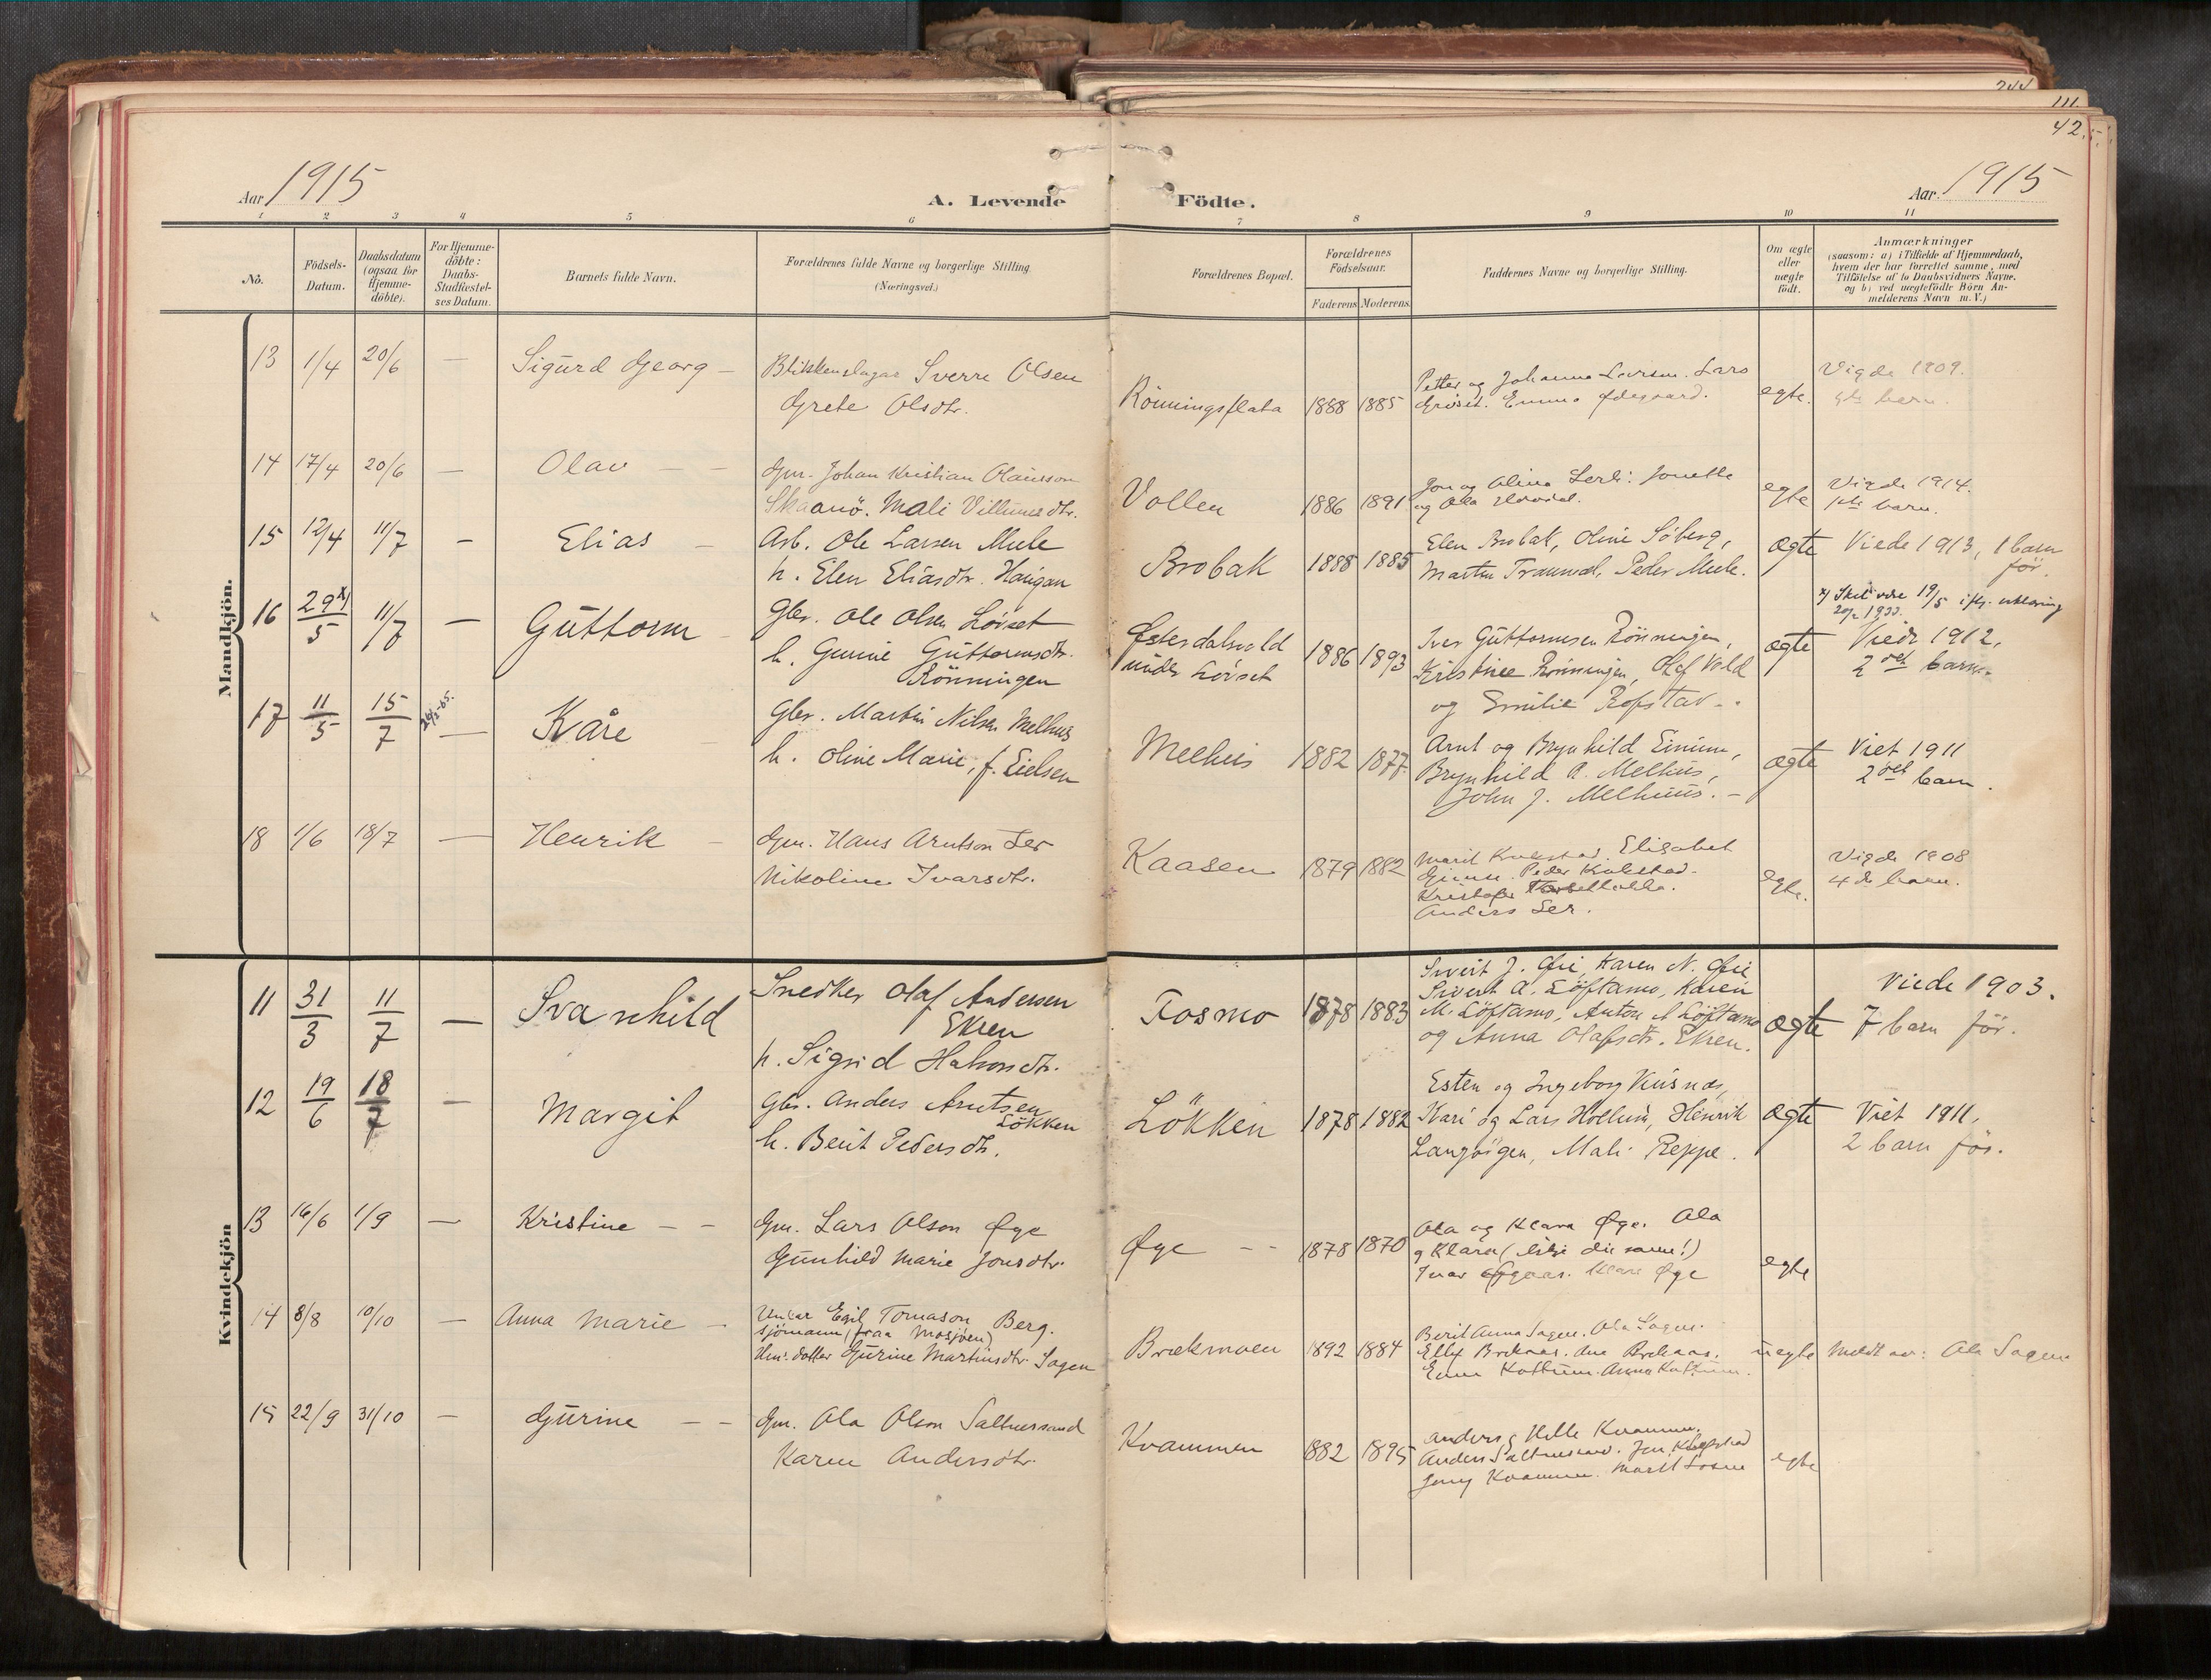 244
111.
42.
Aar 1915
A. Levende Födte.
Aar 1915
1 2 3 4 5 6 7 8 9 10 11
No.
Födsels-
Datum.
Daabsdatum
(ogsaa for
Hjemme-
döbte).
For Hjemme-
döbte:
Daabs-
Stadfæstel-
ses Datum.
Barnets fulde Navn.
Forældrenes fulde Navne og borgerlige Stilling.
(Næringsvei.)
Forældrenes Bopæl.
Forældrenes
Födselsaar.
Faderens Moderens
Faddernes Navne og borgerlige Stilling.
Om ægte
eller
uægte
födt.
Anmærkninger
(saasom: a) i Tilfælde af Hjemmedaab,
hvem der har forrettet samme, med
Tilföielse af to Daabsvidners Navne.
og b) ved uægtefödte Börn An-
melderens Navn m. V.)
Mandkjön.
13 1/4 20/6 — Sigurd Georg —
Blikkenslagar Sverre Olsen
Grete Olsdtr.
Rönningsflata 1888 1885
Petter og Johanna Larsen. Lars
Gröset. Emma Ødegaard.
egte.
Vigde 1909.
barn.
14 17/4 20/6 — Olav — —
Gm. Johan Kristian Olausson
Skaanö. Mali Villumsdtr.
Vollen 1886 1891
Jon og Olina Lerli. Jonetta
og Ola
egte
Vigde 1914.
1ste barn.
15 12/4 11/7 — Elias —
Arb. Ole Larsen Mule
h. Elen Eliasdtr. Haugan
Brobak 1888 1885
Elen Brobak, Oline Söberg,
Martin Tranmæl, Peder Mule.
ægte
Viede 1913, 1 barn
för.
16 29x)/5 11/7 — Guttorm —
Gbr. Ole Olsen Lövset
h. Gunne Guttormsdtr.
Rönningen
Østerdalsvold
under Lövset 1886 1893
Iver Guttormsen Rönningen,
Kristine Rönningen, Olaf Vold
og Emilie Ropstad —.
ægte
x) Skal være 19/5 ifg. erklæring
Viede 1912,
2det barn.
17 11/5 15/7 — Kåre —
Gbr. Martin Nilsen Melhus
h. Oline Marie, f. Eielsen
Melhus 1882 1877
Arnt og Brynhild Einum,
Brynhild A. Melhus,
John J. Melhuus. —
ægte
Viet 1911
2det barn.
18 1/6 18/7 — Henrik —
Gm. Hans Arntson Ler
Nikoline Ivarsdtr.
Kaasen 1879 1882
Marit Kulstad. Elisabet
Gimse. Peder Kulstad.
Kristofer
Anders Ler.
egte.
Vigde 1908
4de barn.
Kvindekjön
11 31/3 11/7 — Svanhild
Snedker Olaf Andersen
Ekren
h. Sigrid Halvorsdtr.
Fosmo 1878 1883
Sivert J. Øie, Karen N. Øie
Sivert A. Löftamo, Karen
M. Löftamo, Anton A Löftamo
og Anna Olafsdtr. Ekren.
ægte
Viede 1903.
7 barn för.
12 19/6 18/7 — Margit
Gbr. Anders Arntsen
Lökken
h. Berit Pedersdtr.
Lökken 1878 1882
Esten og Ingeborg Kusnæs,
Kari og Lars Hollum, Henrik
Langörgen, Mali Reppe.
ægte
Viet 1911,
2 barn för.
13 16/6 1/9 — Kristine — —
Gm. Lars Olson Øye
Gunhild Marie Jonsdtr.
Øye — — 1878 1870
Ola og Klara Øye. Ola
og Klara (likje dei same!)
Ivar Klara Øye
egte
14 8/8 10/10 — Anna Marie —
Unkar Egil Tomason Berg.
sjömann (fraa Mosjöen)
Hus. dotter Gurine Martinsdtr. Sagen
Brækmoen 1892 1884
Berit Anna Sagen. Ola Sagen.
Kattum. Anna Kattum.
uegte
Meldt av: Ola Sagen
15 22/9 31/10 — Gurine — —
Gm. Ola Olson Saltnessand
Karen Andersdtr.
Kvammen 1882 1895
Anders, Kvammen.
Anders Saltnessand.
Jenny Kvammen. Marit
egte